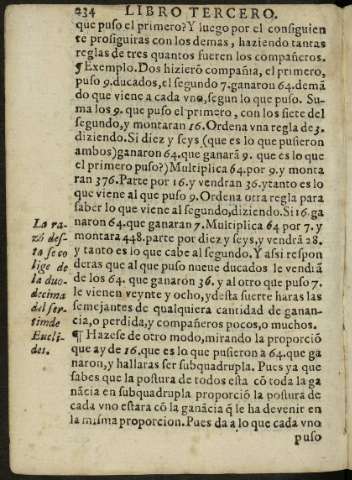 234 LIBRO TERCERO.
que puso el primero? Y luego por el consiguien
te prosiguiras con los demas, haziendo tantas
reglas de tres quantos fueren los compañeros.
¶ Exemplo. Dos hizierõ compañia, el primero,
puso 9. ducados, el segundo 7. ganaron 64. demã
do que viene a cada vno, segun lo que puso. Su-
ma los 9. que puso el primero, con los siete del
segundo, y montaran 16. Ordena vna regla de 3.
diziendo. Si diez y seys (que es lo que pusieron
ambos) ganaron 64. que ganarã 9. que es lo que
el primero puso?) Multiplica 64. por 9. y monta
ran 376. Parte por 16. y vendran 36. y tanto es lo
que viene al que puso 9. Ordena otra regla para
saber lo que viene al segundo, diziendo. Si 16. ga
naron 64. que ganaran 7. Multiplica 64 por 7. y
montara 448. parte por diez y seys, y vendrã 28.
y tanto es lo que cabe al segundo. Y assi respon
deras que al que puso nueue ducados le vendrã
de los 64. que ganaron 36. y al otro que puso 7.
le vienen veynte y ocho, y desta suerte haras las
semejantes de qualquiera cantidad de ganan-
cia, o perdida, y compañeros pocos, o muchos.
¶ Hazese de otro modo, mirando la proporciõ
que ay de 16. que es lo que pusieron a 64. que ga
naron, y hallaras ser subquadrupla. Pues ya que
sabes que la postura de todos esta cõ toda la ga
nãcia en subquadrupla proporciõ la postura de
cada vno estara cõ la ganãcia q̃ le ha devenir en
la misma proporcion. Pues da a lo que cada vno
puso
La ra-
zõ des-
ta se co
lige de
la duo-
decima
del ser-
timo de
Eucli-
des.